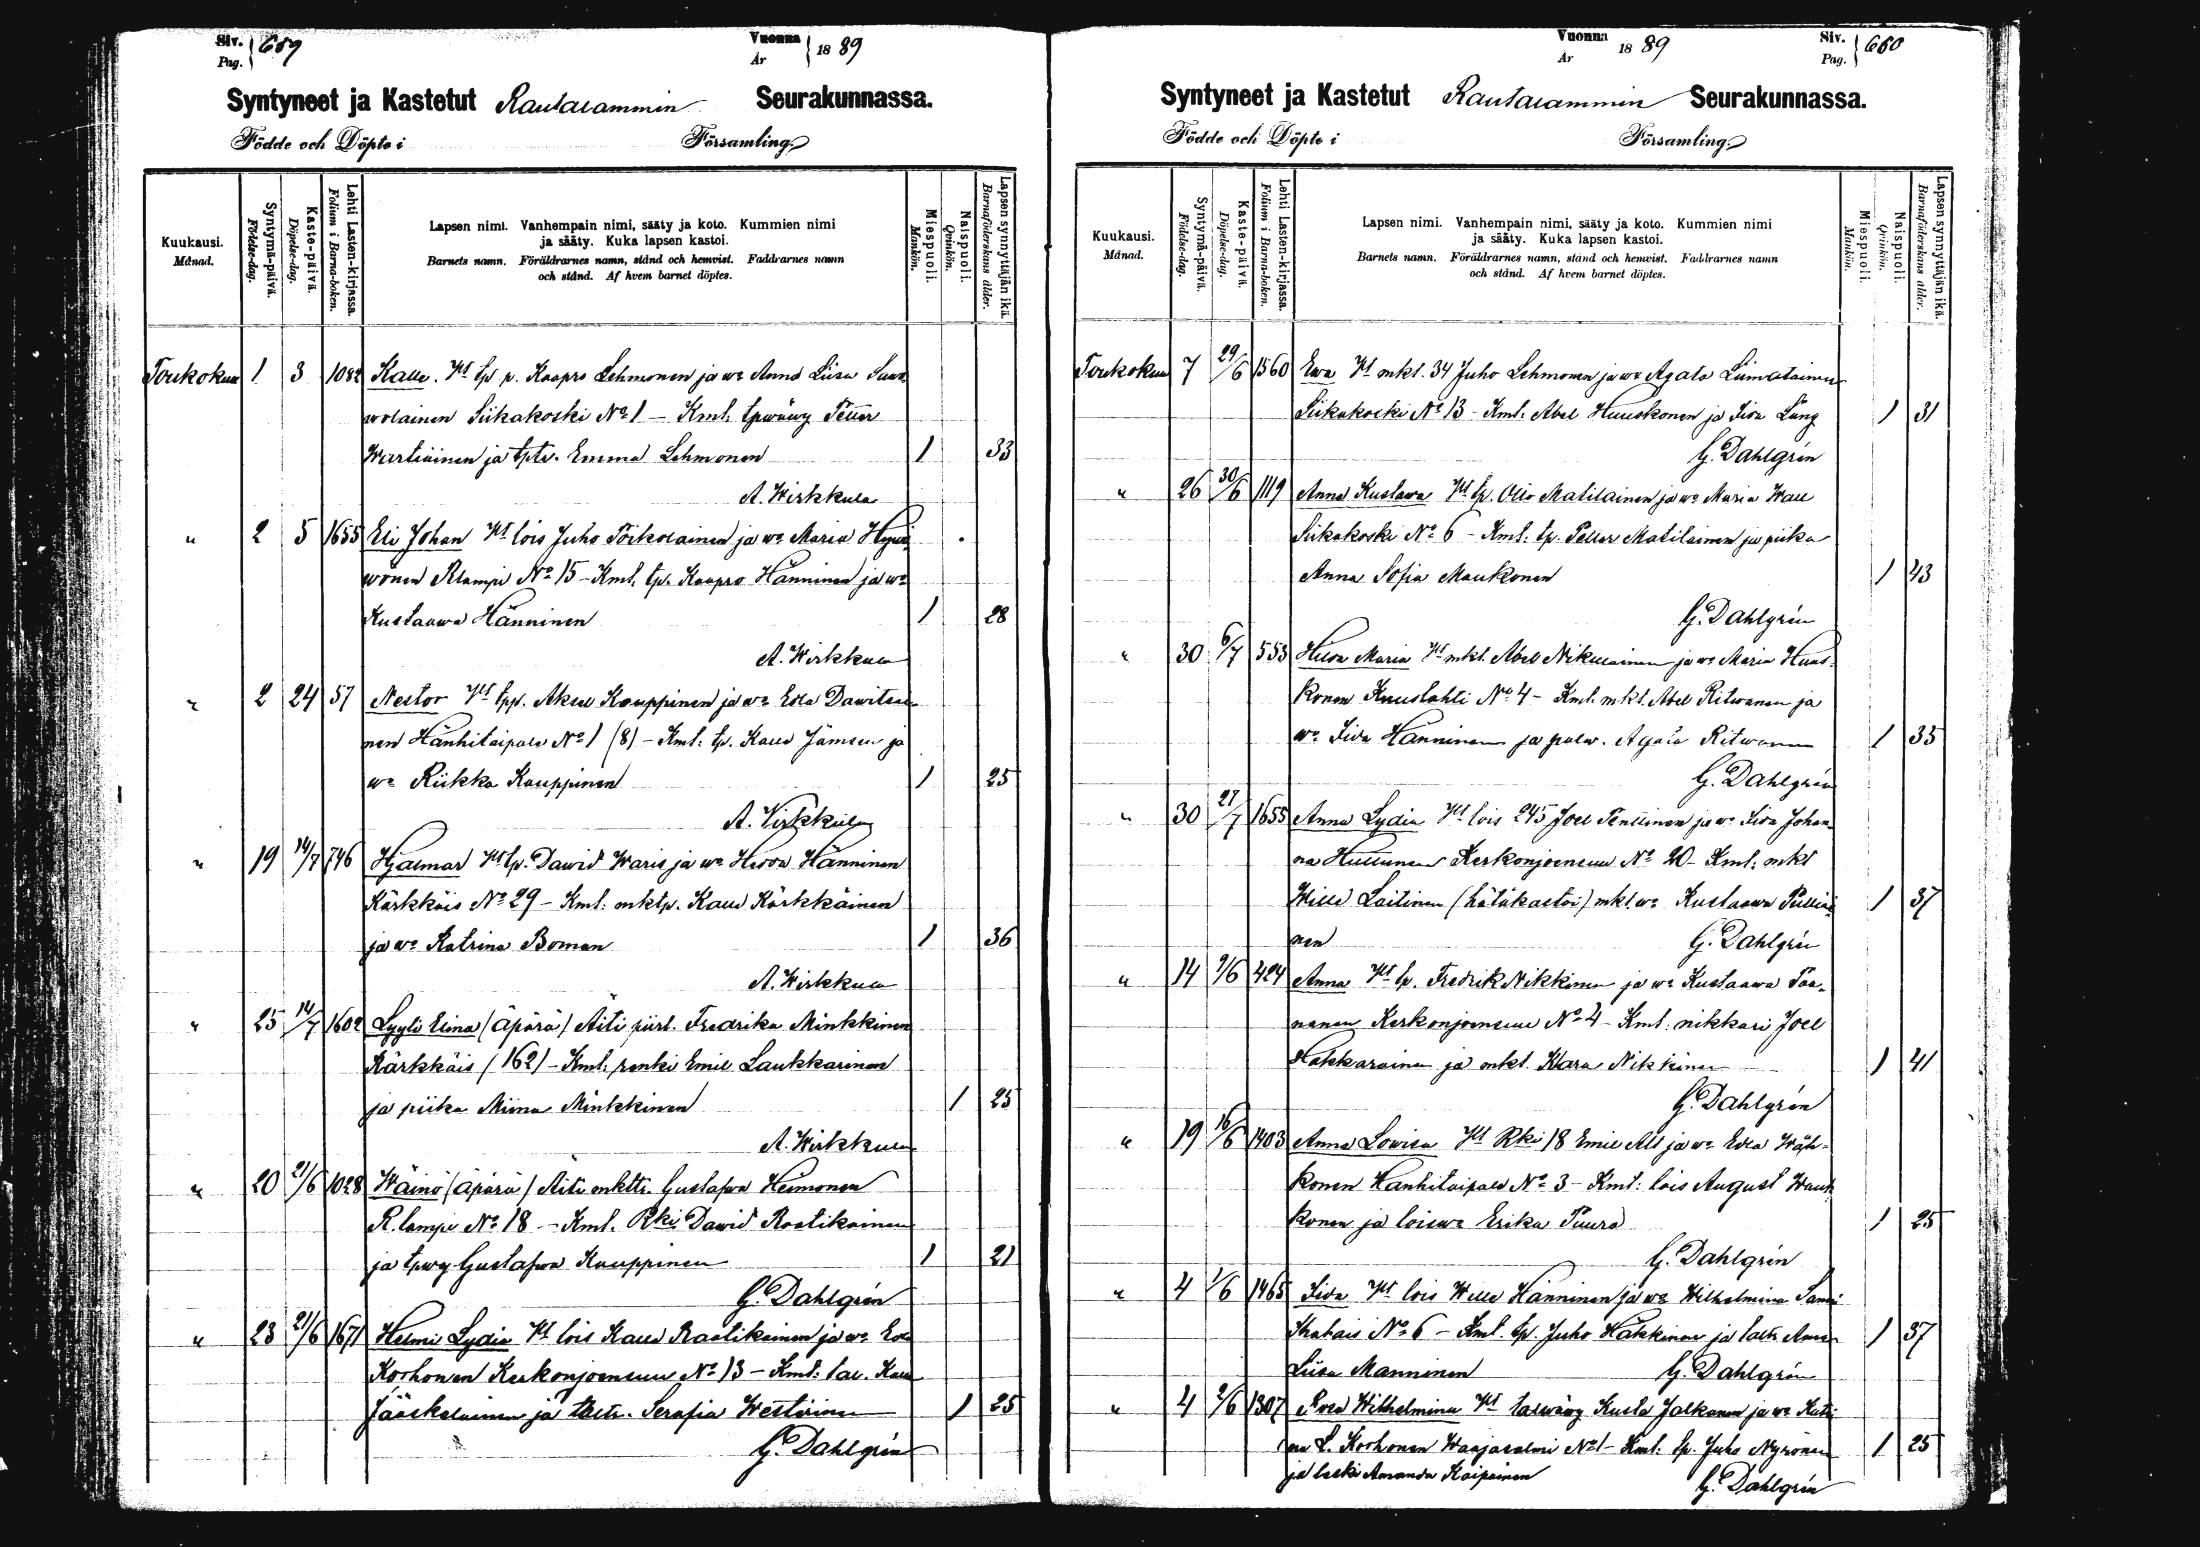 Siv. Pag. 659
Vuonna År 1889
Syntyneet ja Kastetut Rautalammin Seurakunnassa.
Födde och Döpte i Församling.
Kuukausi. Månad.
Syntymä-päivä. Födelse-dag.
Kaste-päivä. Döpelse-dag.
Lehti Lasten-kirjassa. Folium i Barna-boken.
Lapsen nimi. Vanhempain nimi, sääty ja koto. Kummien nimi
ja sääty. Kuka lapsen kastoi.
Barnets namn. Föräldrarnes namn, stånd och hemvist. Faddrarnes namn
och stånd. Af hvem barnet döptes.
Miespuoli. Mankön.
Naispuoli. Qvinkön.
Lapsen synnyttäjän ikä. Barnaföderskans ålder.
Toukokuu 1 3 1082 Kalle. Vt tp p. Kaapro Lehmonen ja wo Anna Liisa Saws
wolainen Siikakoski No 1 – Kml. tpwäwy Petter
Wartiainen ja tptr. Emma Lehmonen 1 33
A. Wirkkula
" 2 5 1655 Eli Johan Vt lois Juho Poikolainen ja wo Maria Hyvi
wönen Rlampi No 15 – Kml. tp. Kaapro Hänninen ja wo
Kustaawa Hänninen 1 28
A. Wirkkula
" 2 24 57 Nestor Vt tpp. Aksel Kauppinen ja wo Eda Dawitsai
nen Hänhitaipale No 1 (8) – Kml. tp. Kalle Jämsen ja
wo Riikka Kauppinen 1 25
A. Wirkkula
" 19 14/7 746 Hjalmar Vt tp. Dawid Waris ja wo Hilda Hänninen
Kärkkäis No 29 – Kml. mktp. Kalle Kärkkäinen
ja wo Katrina Boman 1 36
A. Wirkkula
" 25 14/7 1602 Lyyli Elina (äpärä) Äiti piirl. Fredrika Minkkinen
Kärkkäis (162) – Kml. renki Emil Laukkarinen
ja piika Miina Minkkinen 1 25
A. Wirkkula
" 20 21/6 1028 Wäinö (äpärä) Äiti mkttr. Gustafwa Heimonen
R.lampi No 18 – Kml. Rki Dawid Raatikainen
ja tpwy Gustafwa Kauppinen 1 21
G. Dahlgrén
" 23 21/6 1671 Helmi Lydia Vt lois Kalle Raatikainen ja wo Eda
Korhonen Kerkonjoensuu No 13 – Kml: tal. Kalle
Jääskeläinen ja taltr. Serafia Westerinen 1 25
G. Dahlgrén
Vuonna År 1889
Siv. Pag. 660
Syntyneet ja Kastetut Rautalammin Seurakunnassa.
Födde och Döpte i Församling.
Kuukausi. Månad.
Syntymä-päivä. Födelse-dag.
Kaste-päivä. Döpelse-dag.
Lehti Lasten-kirjassa. Folium i Barna-boken.
Lapsen nimi. Vanhempain nimi, sääty ja koto. Kummien nimi
ja sääty. Kuka lapsen kastoi.
Barnets namn. Föräldrarnes namn, stånd och hemvist. Faddrarnes namn
och stånd. Af hvem barnet döptes.
Miespuoli. Mankön.
Naispuoli. Qvinkön.
Lapsen synnyttäjän ikä. Barnaföderskans ålder.
Toukokuu 7 29/6 1560 Ewa Vt mkl. 34 Juho Lehmonen ja wo Agata Liimatainen
Siikakoski No 13 – Kml. Abel Huuskonen ja Lida Läng 1 31
G. Dahlgrén
" 26 30/6 1119 Anna Kustava Vt tp. Otto Matilainen ja wo Maria Wall
Siikakoski No 6 – Kml. tp. Petter Matilainen ja piika
Anna Sofia Maukonen 1 43
G. Dahlgrén
" 30 6/7 553 Hilda Maria Vt mkl. Abel Nikulainen ja wo Maria Huus-
konen Kuuslahti No 4 – Kml. mkl. Abel Ritwanen ja
wo Lida Hänninen ja palw. Agata Ritwanen 1 35
G. Dahlgrén
" 30 27/7 1655 Anna Lydia Vt lois 245 Joel Penttinen ja wo Lida Johan-
na Huttunen Kerkonjoensuu No 20 – Kml: mkl
Wille Laitinen (hätäkastoi) mkl. wo Kustaawa Pulliai
nen 1 37
G. Dahlgrén
" 14 9/6 424 Anna Vt tp. Fredrik Nikkinen ja wo Kustaawa Paa-
nanen Kerkonjoensuu No 4 – Kml. nikkari Joel
Hakkarainen ja mkl. Klara Nikkinen 1 41
G. Dahlgrén
" 19 16/6 1403 Anna Lowisa Vt Rki 18 Emil Alt ja wo Eda Wäh-
konen Hanhitaipale No 3 – Kml: lois August Hauk
konen ja loiswo Erika Puura 1 25
G. Dahlgrén
" 4 1/6 1465 Lida Vt lois Wille Hänninen ja wo Wilhelmina Sami
No 6 – Kml. tp. Juho Häkkinen ja taltr Anna 1 37
Liisa Manninen G. Dahlgrén
" 4 2/6 1307 Wilhelmina Vt talwäwy Kusta Jalkanen ja wo Katri
na L. Korhonen Waajasalmi No 1 – Kml. tp. Juho Nyrönen 1 25
ja leski Amanda Kaipainen
G. Dahlgrén